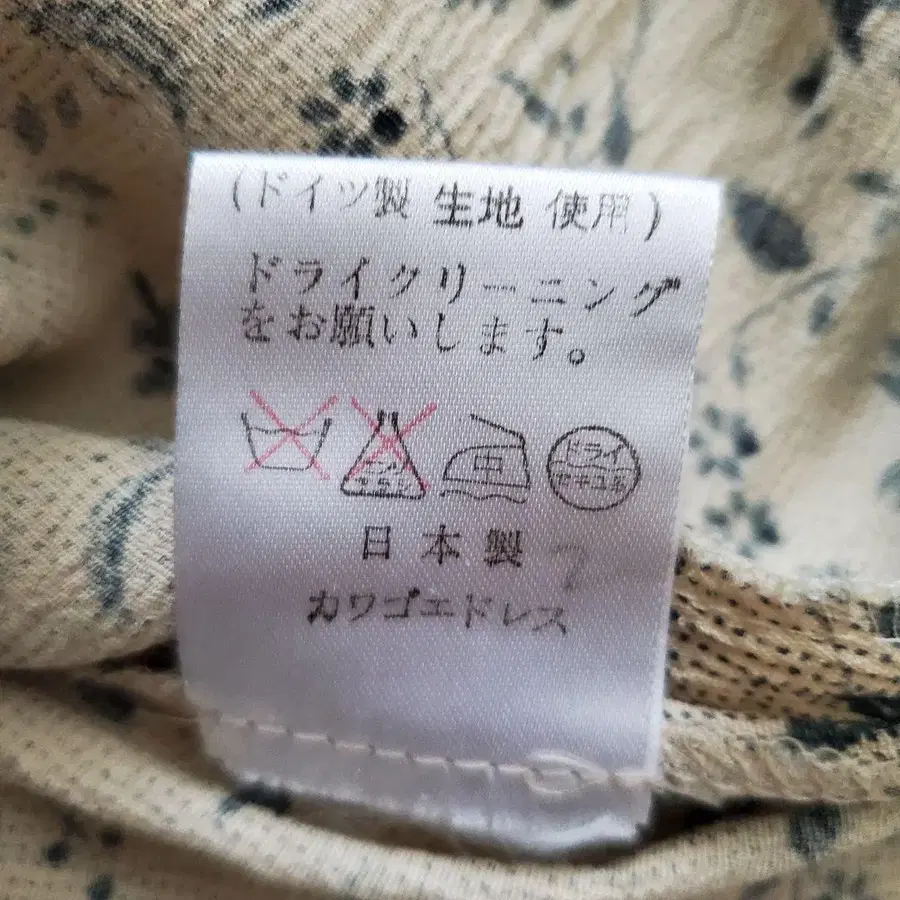 (ドイツ製 生地 使用)
ドライクリーニング
をお願いします。
中 ドライ
セキユ系
日本製 7
カワゴエドレス